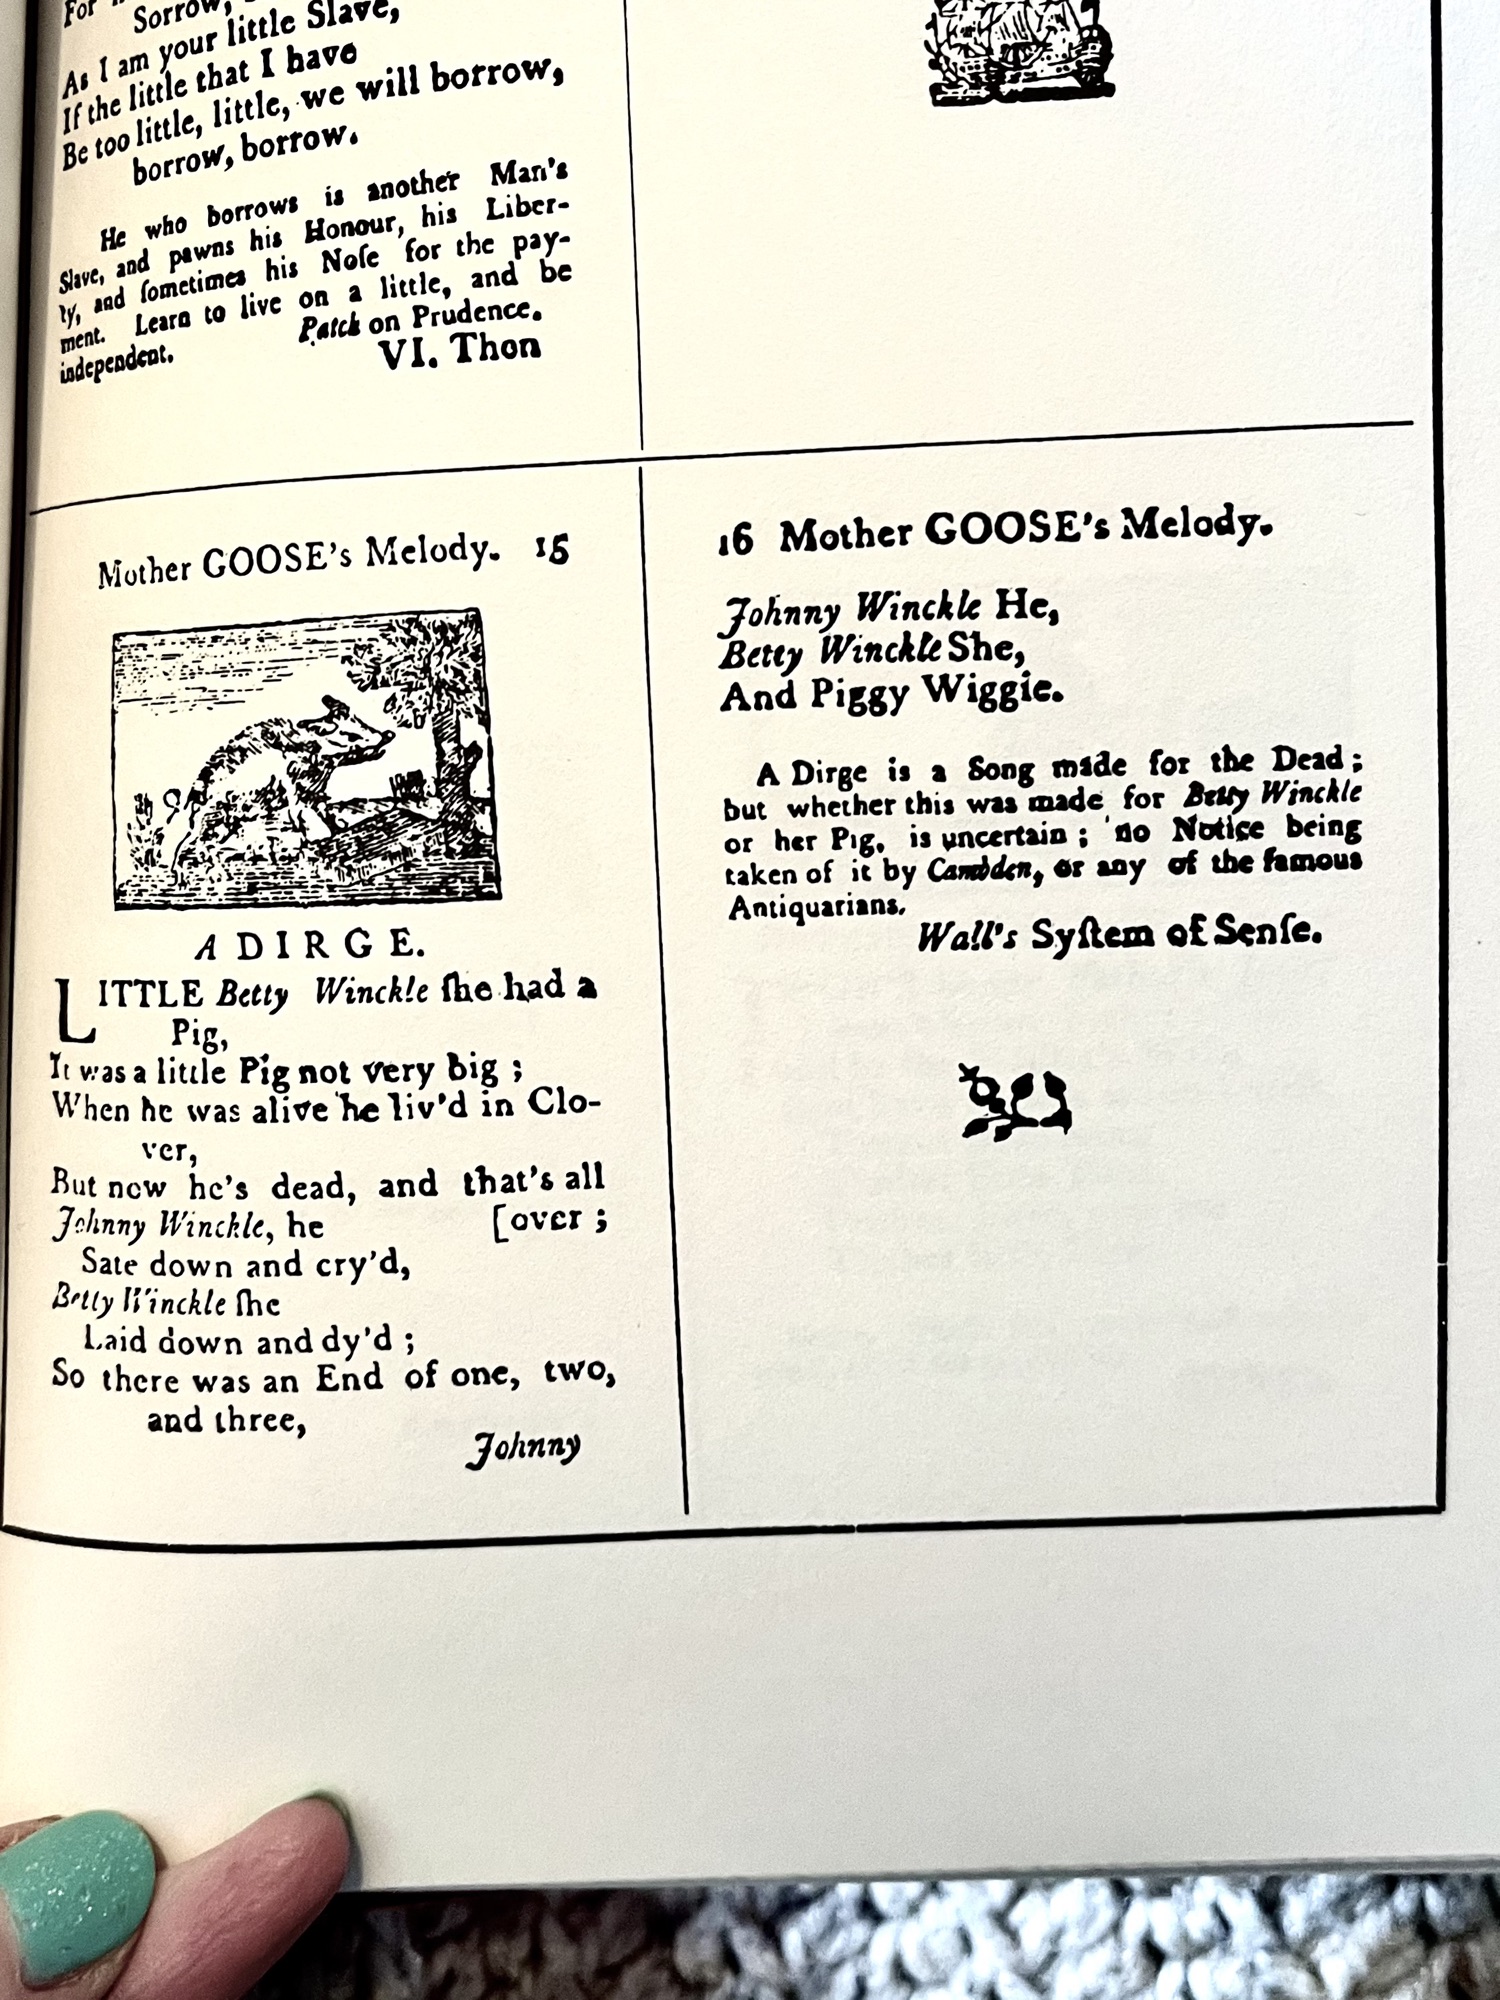 For
Sorrow,
As I am your little Slave,
If the little that I have
Be too little, little, we will borrow,
borrow, borrow.
He who borrows is another Man's
Slave, and pawns his Honour, his Liber-
ty, and ſometimes his Noſe for the pay-
ment. Learn to live on a little, and be
independent.
Patch on Prudence.
VI. Thon
Mother GOOSE's Melody. 15
A DIRGE.
LITTLE Betty Winckle ſhe had a
Pig,
It was a little Pig not very big ;
When he was alive he liv'd in Clo-
ver,
But now he's dead, and that's all
Johnny Winckle, he [over ;
Sate down and cry'd,
Betty Winckle ſhe
Laid down and dy'd ;
So there was an End of one, two,
and three,
Johnny
16 Mother GOOSE's Melody.
Johnny Winckle He,
Betty Winckle She,
And Piggy Wiggie.
A Dirge is a Song made for the Dead ;
but whether this was made for Betty Winckle
or her Pig, is uncertain ; no Notice being
taken of it by Cambden, or any of the famous
Antiquarians.
Wall's Syſtem of Senſe.